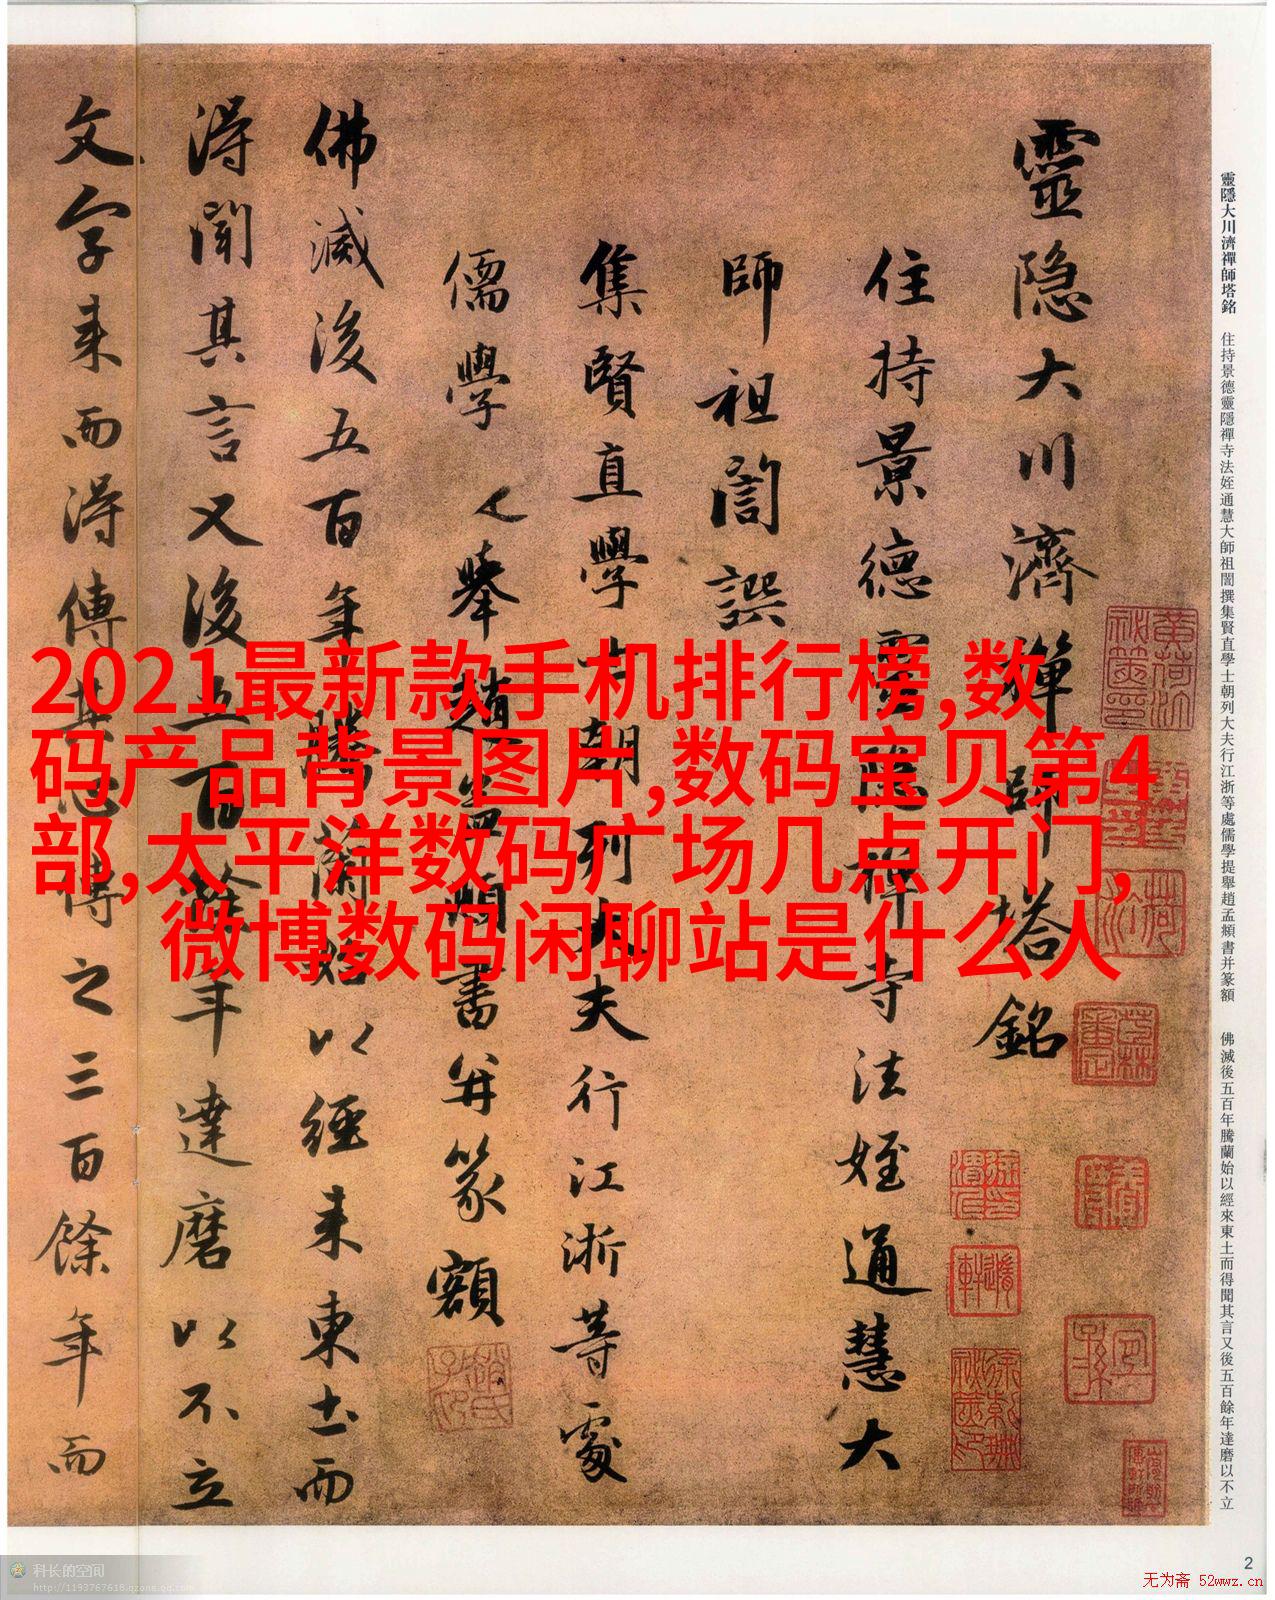 靈隱大川濟禪師塔銘
住持景德靈隱禪寺法姪通慧大
師祖誾譔
集賢直學士朝列大夫行江浙等處
儒學提舉趙孟頫書并篆額
佛滅後五百年騰蘭始以經来東土而
得聞其言又後五百餘年達磨以不立
文字来而得傳其心傳之三百餘年而
靈隱大川濟禪師塔銘 住持景德靈隱禪寺法姪通慧大師祖誾撰集賢直學士朝列大夫行江浙等處儒學提舉趙孟頫書并篆額 佛滅後五百年騰蘭始以經來東土而得聞其言又後五百餘年達磨以不立
2021最新款手机排行榜,数
码产品背景图片,数码宝贝第4
部,太平洋数码广场几点开门,
微博数码闲聊站是什么人
科长的空间
http://1193767618.qzone.qq.com
2
无为斋 52wwz.cn